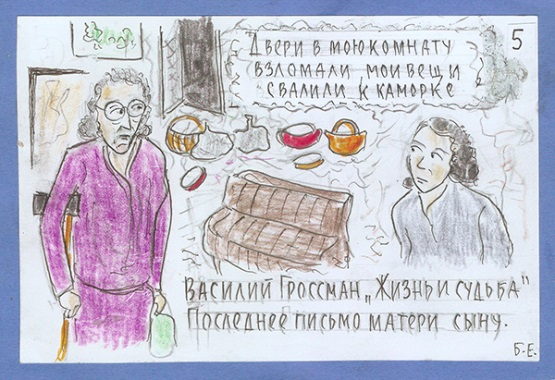 5
Двери в мою комнату
взломали мои вещи
свалили к каморке
Василий Гроссман „Жизнь и судьба"
Последнее письмо матери сыну.
Б.Е.